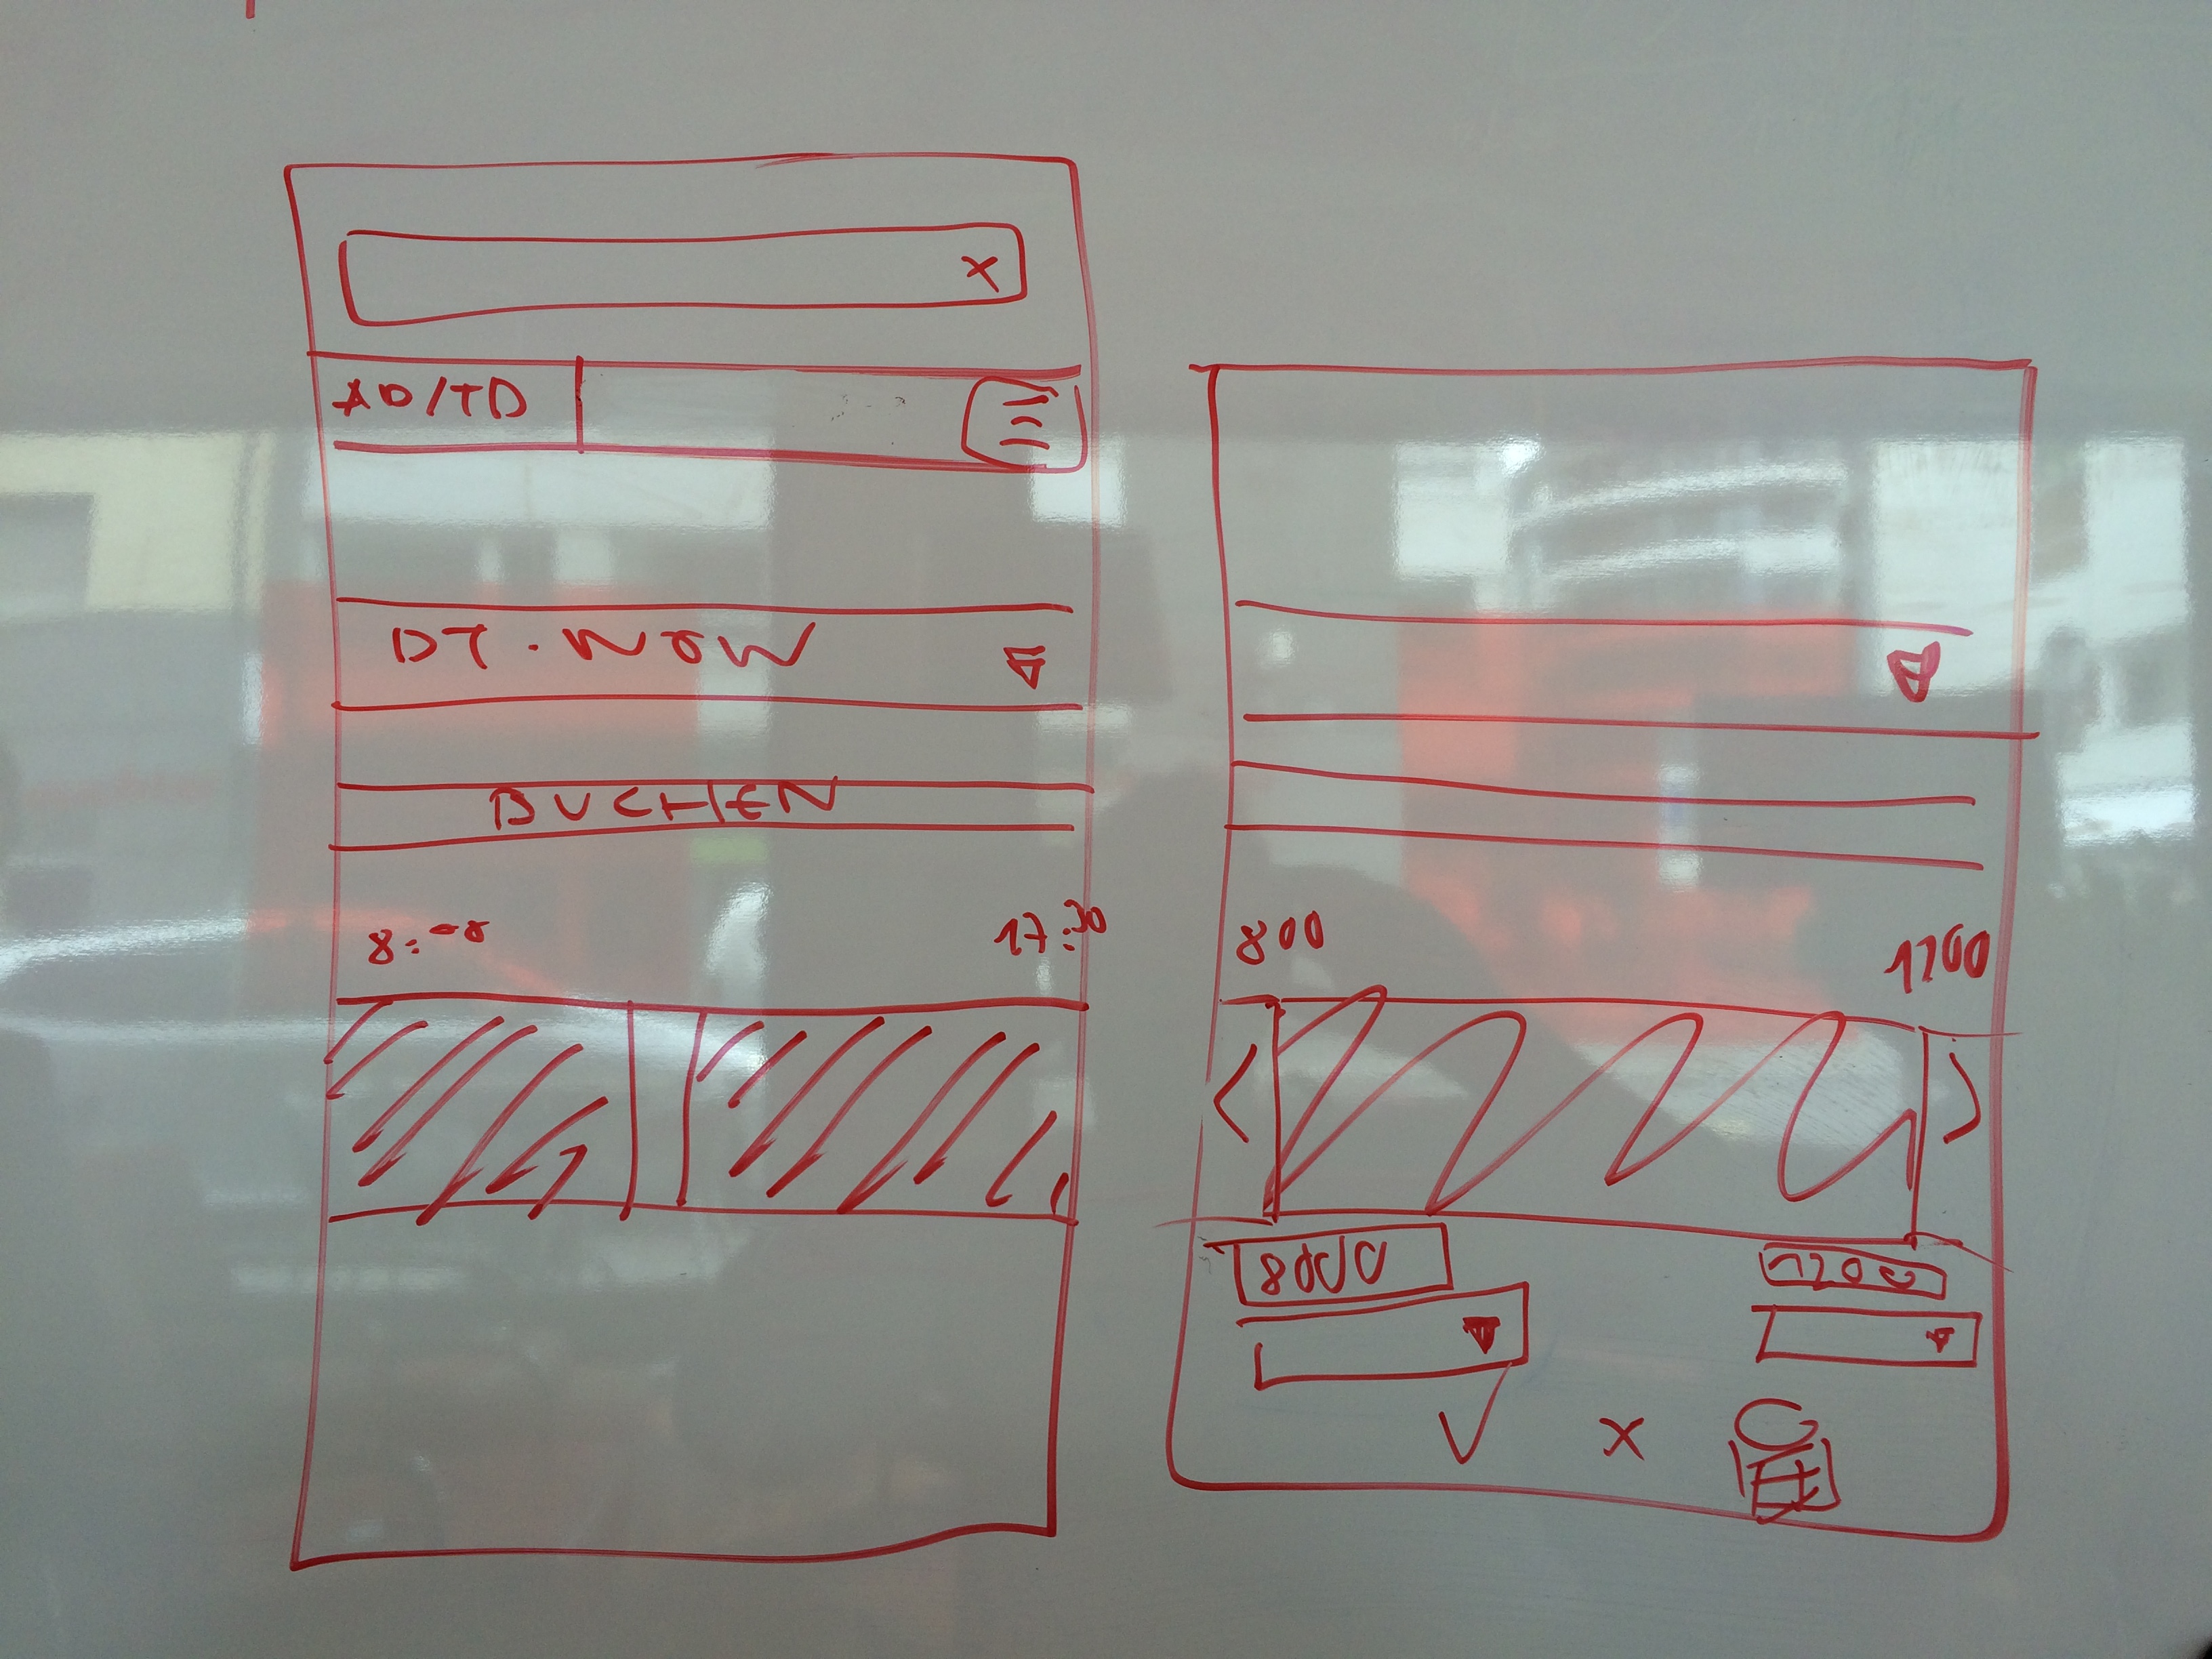 x
AD/TD
DT. NOW
BUCHEN
17:30
800
1200
800
1200
x